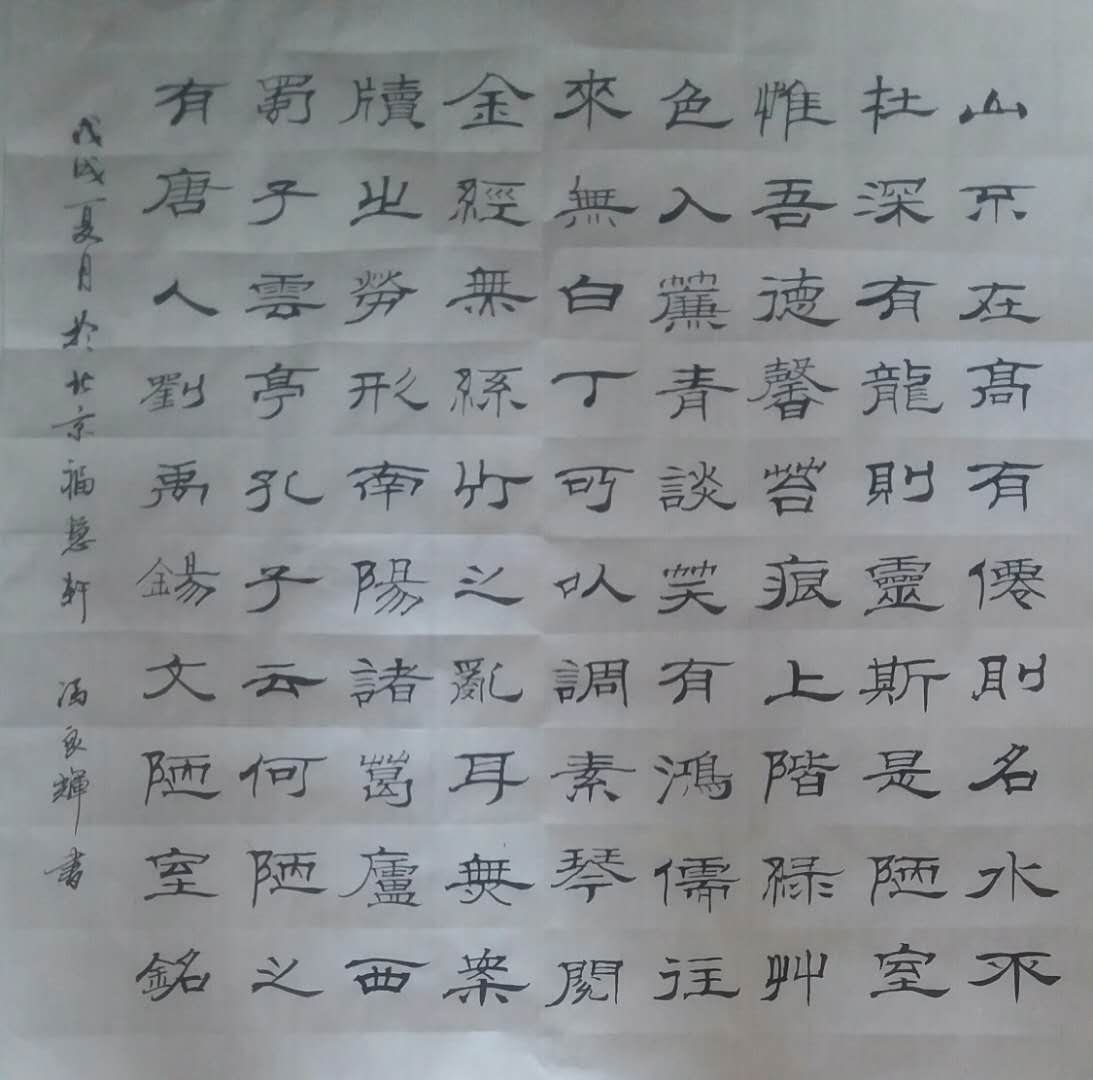 山不在高有僊則名水不
杜深有龍則靈斯是陋室
惟吾德馨苔痕上階緑艸
色入簾青談笑有鴻儒往
來無白丁可以調素琴閱
金經無絲竹之亂耳無案
牘之勞形南陽諸葛廬西
蜀子雲亭孔子云何陋之
有唐人劉禹錫文陋室銘
戊戌夏月於北京福慧軒 馮良輝書